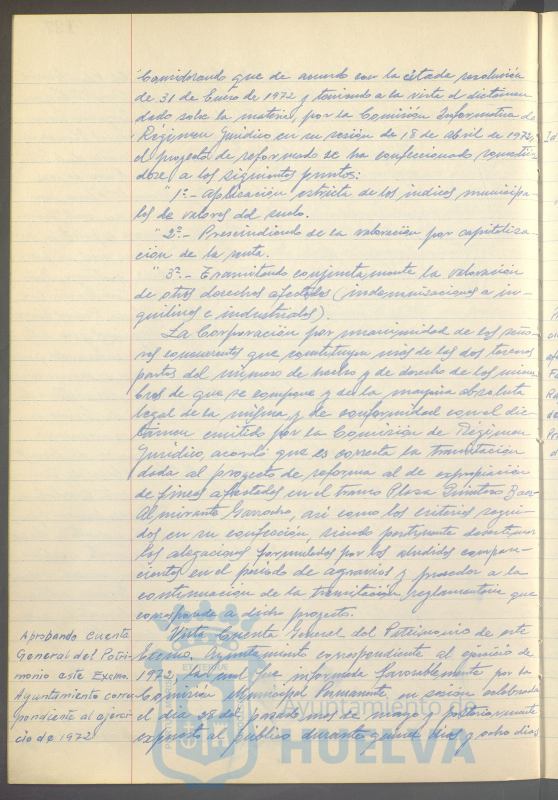 "Considerando que de acuerdo con la citada resolución
de 31 de Enero de 1972 y teniendo a la vista el dictámen
dado sobre la materia, por la Comisión Informativa de
Régimen Jurídico en su sesión de 18 de Abril de 1972,
el proyecto de reformado se ha confeccionado
dose a los siguientes puntos:
"1º.- Aplicación estricta de los indices municipa
les de valores del suelo.
"2º.- Prescindiendo de la valoración por capitaliza-
ción de la renta.
"3º.- Tramitando conjuntamente la valoración
de otros derechos afectados (indemnizaciones a in-
quilinos e industriales).
La Corporación por unanimidad de los seño-
res concurrentes que constituyen más de las dos terceras
partes del número de hecho y de derecho de los miem
bros de que se compone y de la mayoría absoluta
legal de la misma y de conformidad con el dic-
támen emitido por la Comisión de Régimen
Jurídico, acordó que es correcta la tramitación
dada al proyecto de reforma al de expropiación
de fincas afectadas en el tramo Plaza Quintero Baez-
Almirante Garrocho, así como los criterios segui-
dos en su confección, siendo
las alegaciones formuladas por los aludidos compare-
cientes en el período de agravios y proceder a la
continuación de la tramitación reglamentaria que
corresponde a dicho proyecto.
Aprobando cuenta
General del Patri-
monio este Excmo.
Ayuntamiento corres
pondiente al ejerci-
cio de 1972
Vista Cuenta General del Patrimonio de este
Excmo. Ayuntamiento correspondiente al ejercicio de
1972, tal cual fue informada favorablemente por la
Comisión Municipal Permanente en sesión celebrada
el día 28 del pasado mes de mayo y posteriormente
expuesta al público durante quince días y ocho días
Ayuntamiento de
HUELVA